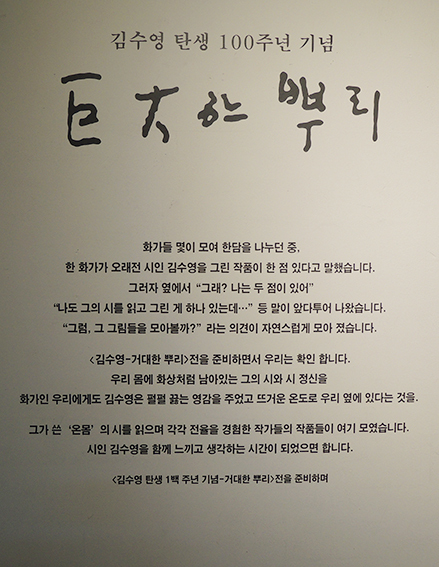 김수영 탄생 100주년 기념
巨大한 뿌리
화가들 몇이 모여 한담을 나누던 중,
한 화가가 오래전 시인 김수영을 그린 작품이 한 점 있다고 말했습니다.
그러자 옆에서 “그래? 나는 두 점이 있어”
“나도 그의 시를 읽고 그린 게 하나 있는데…” 등 말이 앞다투어 나왔습니다.
“그럼, 그 그림들을 모아볼까?” 라는 의견이 자연스럽게 모아 졌습니다.
<김수영-거대한 뿌리>전을 준비하면서 우리는 확인 합니다.
우리 몸에 화상처럼 남아있는 그의 시와 시 정신을
화가인 우리에게도 김수영은 펄펄 끓는 영감을 주었고 뜨거운 온도로 우리 옆에 있다는 것을.
그가 쓴 ‘온몸’의 시를 읽으며 각각 전율을 경험한 작가들의 작품들이 여기 모였습니다.
시인 김수영을 함께 느끼고 생각하는 시간이 되었으면 합니다.
<김수영 탄생 1백 주년 기념-거대한 뿌리>전을 준비하며